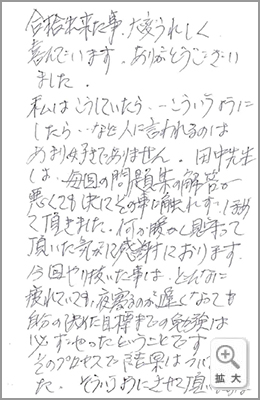 合格出来た事、大変うれしく
喜んでいます。ありがとうござい
ました。
私はこうしていたら…こういうように
したら…などと人に言われるのは
あまり好きでありません。田中先生
は、毎回の問題集の解答が
悪くても決してその事に触れず、ほめ
て頂きました。何か暖かく見守って
頂いた気がして感謝しております。
今回やり抜いた事は、どんなに
疲れていても、夜寝るのが遅くなっても
自分の決めた目標までの勉強は
必ずやったということです
そのプロセスで結果は
た。そういうようにさせて頂いた
拡大